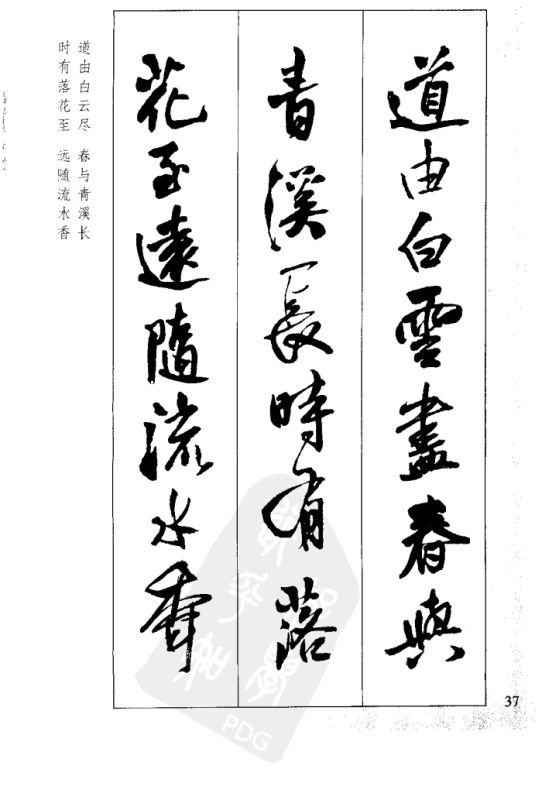 道由白雲盡春與
青溪長時有落
花至遠隨流水香
道由白云尽　春与青溪长
时有落花至　远随流水香
37
PDG